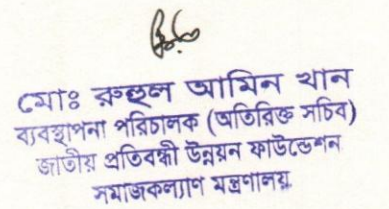 মোঃ রুহুল আমিন খান
ব্যবস্থাপনা পরিচালক (অতিরিক্ত সচিব)
জাতীয় প্রতিবন্ধী উন্নয়ন ফাউন্ডেশন
সমাজকল্যাণ মন্ত্রণালয়